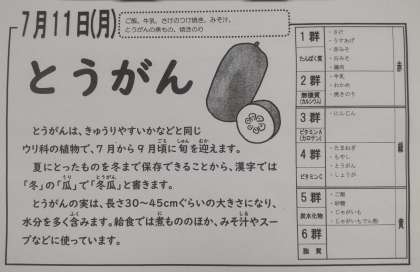 7月11日(月)
ご飯、牛乳、さけのつけ焼き、みそ汁、
とうがんの煮もの、焼きのり
とうがん
とうがんは、きゅうりやすいかなどと同じ
ウリ科の植物で、7月から9月頃に旬を迎えます。
ごろ しゅん むか
夏にとったものを冬まで保存できることから、漢字では
「冬」の「瓜」で「冬瓜」と書きます。
うり とうがん
とうがんの実は、長さ30～45cmぐらいの大きさになり、
水分を多く含みます。給食では煮もののほか、みそ汁やスー
プなどに使っています。
1群
たんぱく質
・さけ
・うすあげ
・赤みそ
・白みそ
・鶏肉
2群
無機質
(カルシウム)
・牛乳
・わかめ
・焼きのり
3群
ビタミンA
(カロテン)
・にんじん
4群
ビタミンC
・たまねぎ
・もやし
・とうがん
・しょうが
5群
炭水化物
・ご飯
・砂糖
・じゃがいも
・じゃがいもでん粉
6群
脂質